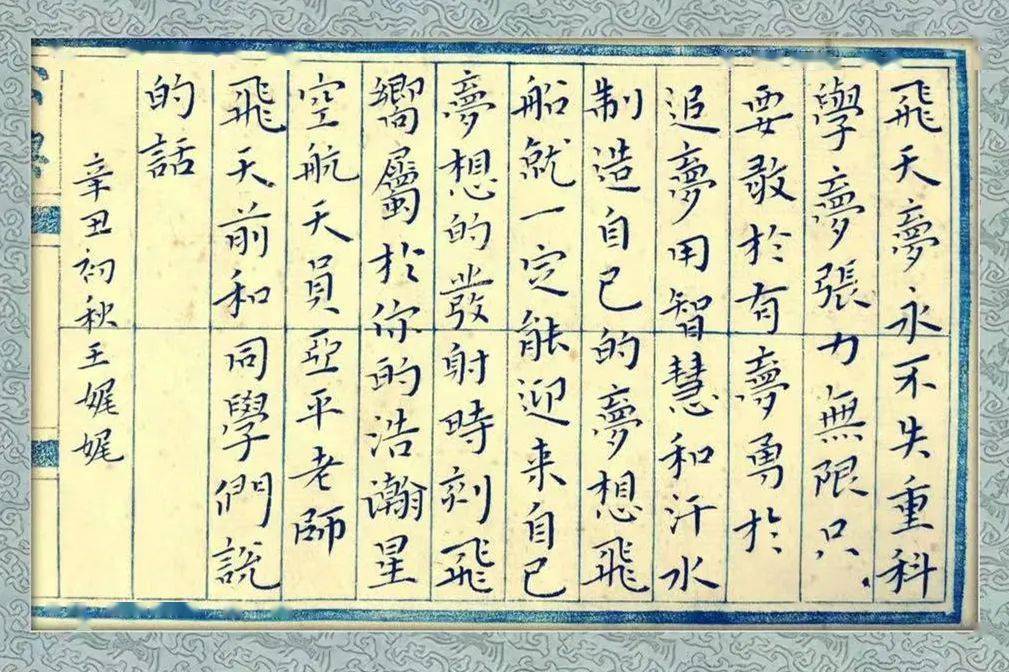 飛天夢永不失重科
學夢張力無限只
要敢於有夢勇於
追夢用智慧和汗水
制造自己的夢想飛
船就一定能迎来自己
夢想的發射時刻飛
嚮屬於你的浩瀚星
空航天員亞平老師
飛天前和同學們說
的話
辛丑初秋王娓娓